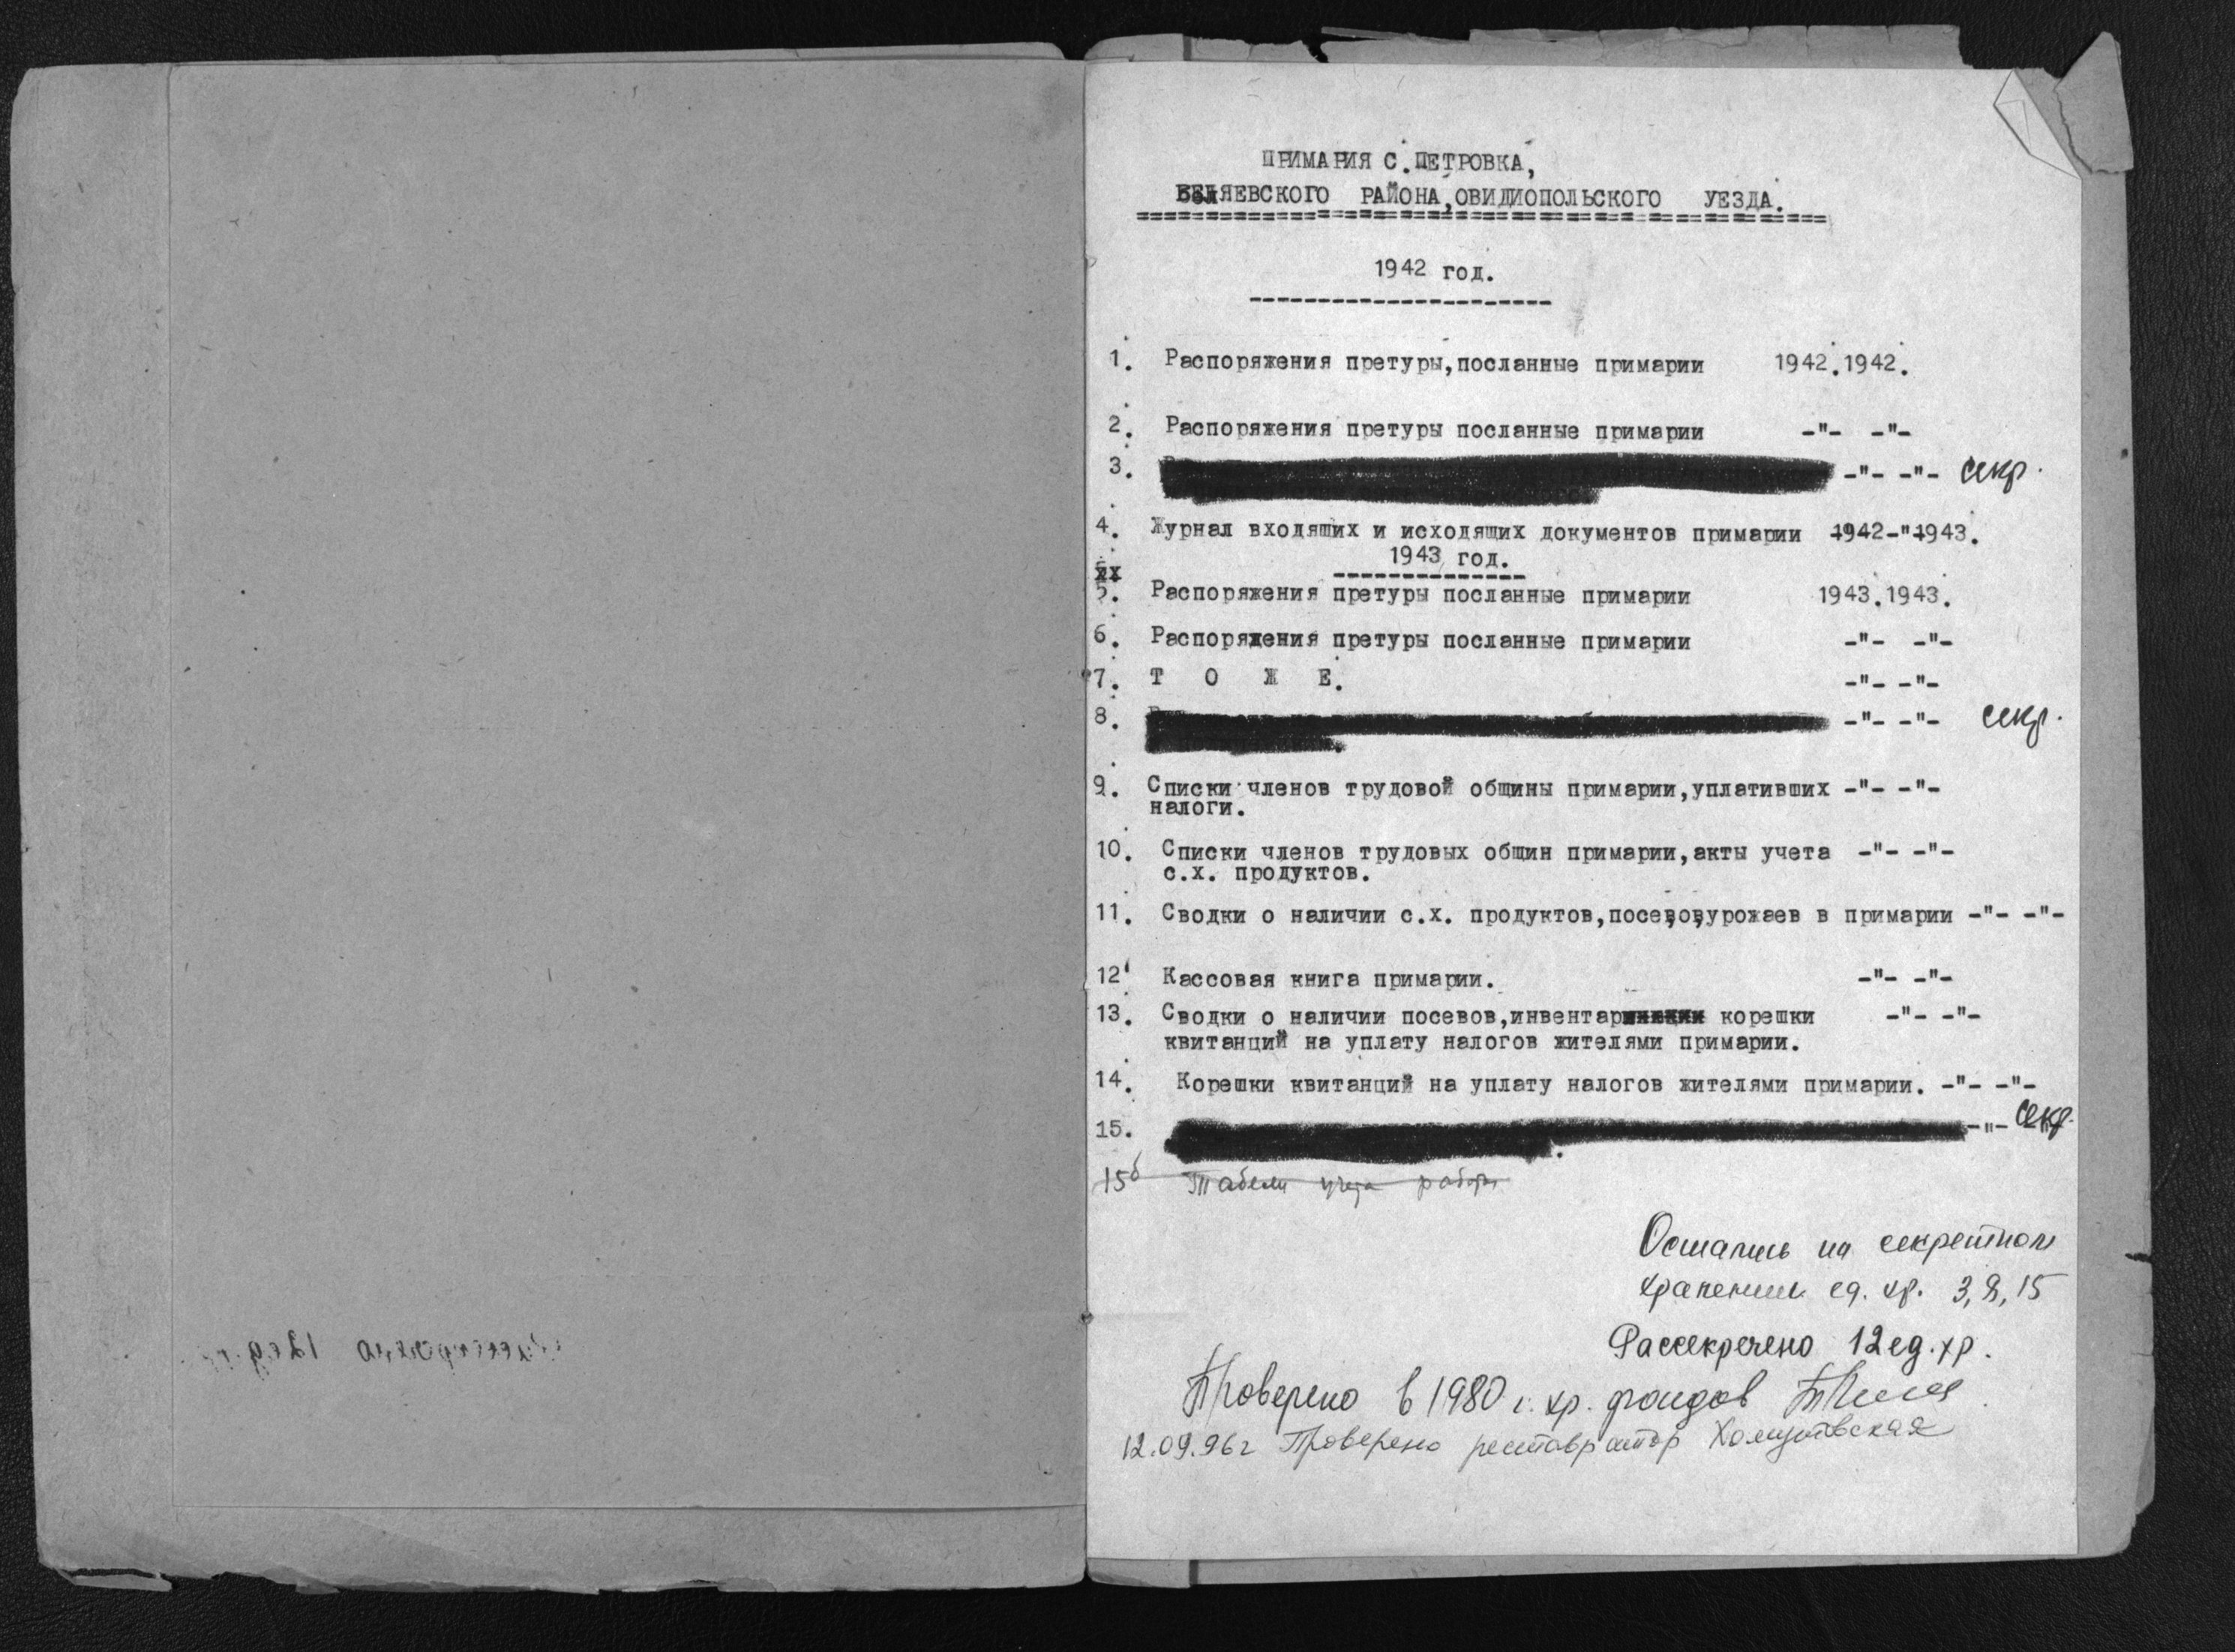 ПРИМАРИЯ С.ПЕТРОВКА,
БЕЛЯЕВСКОГО РАЙОНА,ОВИДИОПОЛЬСКОГО УЕЗДА.
1942 год.
1. Распоряжения претуры,посланные примарии 1942.1942.
2. Распоряжения претуры посланные примарии -"- -"-
3. -"- -"- секр.
4. Журнал входящих и исходящих документов примарии 1942-"1943.
1943 год.
5. Распоряжения претуры посланные примарии 1943.1943.
6. Распорядения претуры посланные примарии -"- -"-
7. Т О Ж Е. -"- -"-
8. -"- -"- секр.
9. Списки членов трудовой общины примарии,уплативших -"- -"-
налоги.
10. Списки членов трудовых общин примарии,акты учета -"- -"-
с.х. продуктов.
11. Сводки о наличии с.х. продуктов,посевов,урожаев в примарии -"- -"-
12 Кассовая книга примарии. -"- -"-
13. Сводки о наличии посевов,инвентар корешки -"- -"-
квитанций на уплату налогов жителями примарии.
14. Корешки квитанций на уплату налогов жителями примарии. -"- -"-
15. -"- секр.
15б Табели учета работы
Остались на секретном
хранении ед. хр. 3, 8, 15
Рассекречено 12 ед. хр.
Проверено в 1980 г. хр. фондов
12.09.96г Проверено реставратор Хомутовская